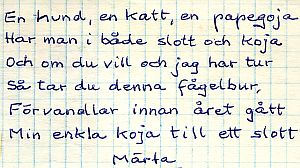 En hund, en katt, en papegoja
Har man i både slott och koja
Och om du vill och jag har tur
Så tar du denna fågelbur,
Förvandlar innan året gått
Min enkla koja till ett slott
Märta